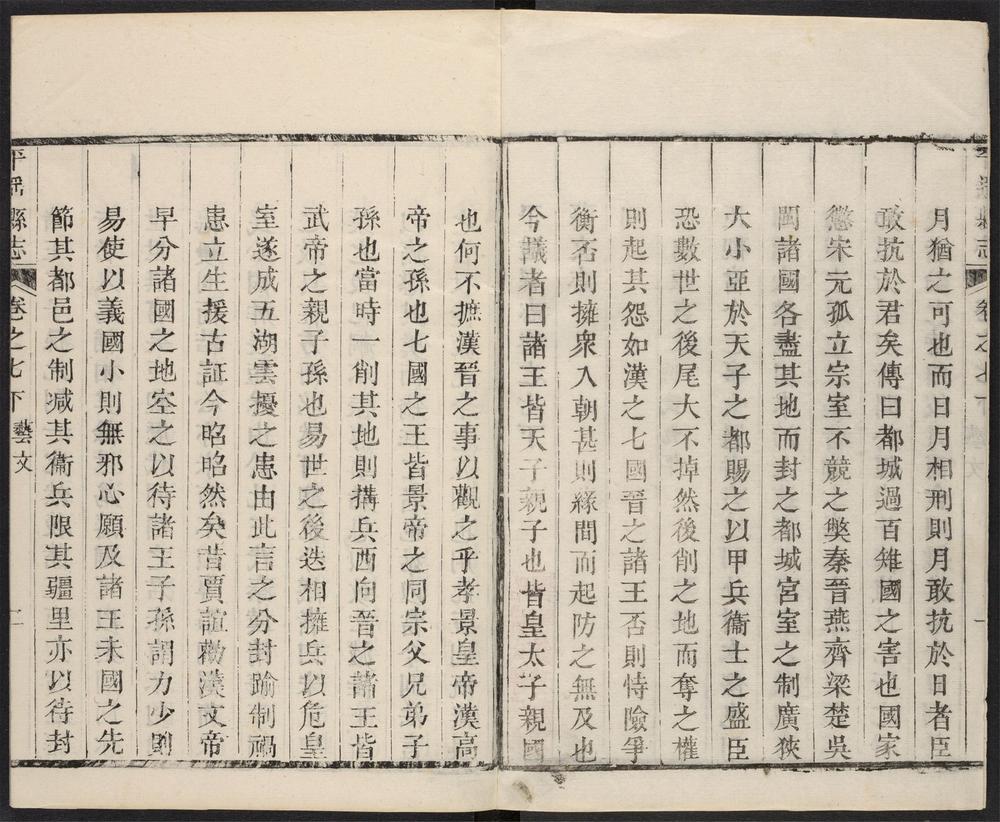 月猶之可也而日月相刑則月敢抗於日者臣
敢抗於君矣傳曰都城過百雉國之害也國家
懲宋元孤立宗室不競之獘秦晉燕齊梁楚吳
閩諸國各盡其地而封之都城宮室之制廣狹
大小亞於天子之都賜之以甲兵衞士之盛臣
恐數世之後尾大不掉然後削之地而奪之權
則起其怨如漢之七國晉之諸王否則恃險爭
衡否則擁衆入朝甚則緣間而起防之無及也
今議者曰諸王皆天子親子也皆皇太子親國
也何不摭漢晉之事以觀之乎孝景皇帝漢高
帝之孫也七國之王皆景帝之同宗父兄弟子
孫也當時一削其地則搆兵西向晉之諸王皆
武帝之親子孫也易世之後迭相擁兵以危皇
室遂成五湖雲擾之患由此言之分封踰制禍
患立生援古証今昭昭然矣昔賈誼勸漢文帝
早分諸國之地空之以待諸王子孫謂力少則
易使以義國小則無邪心願及諸王未國之先
節其都邑之制减其衞兵限其疆里亦以待封
平遥縣志 卷之七下 藝文 二